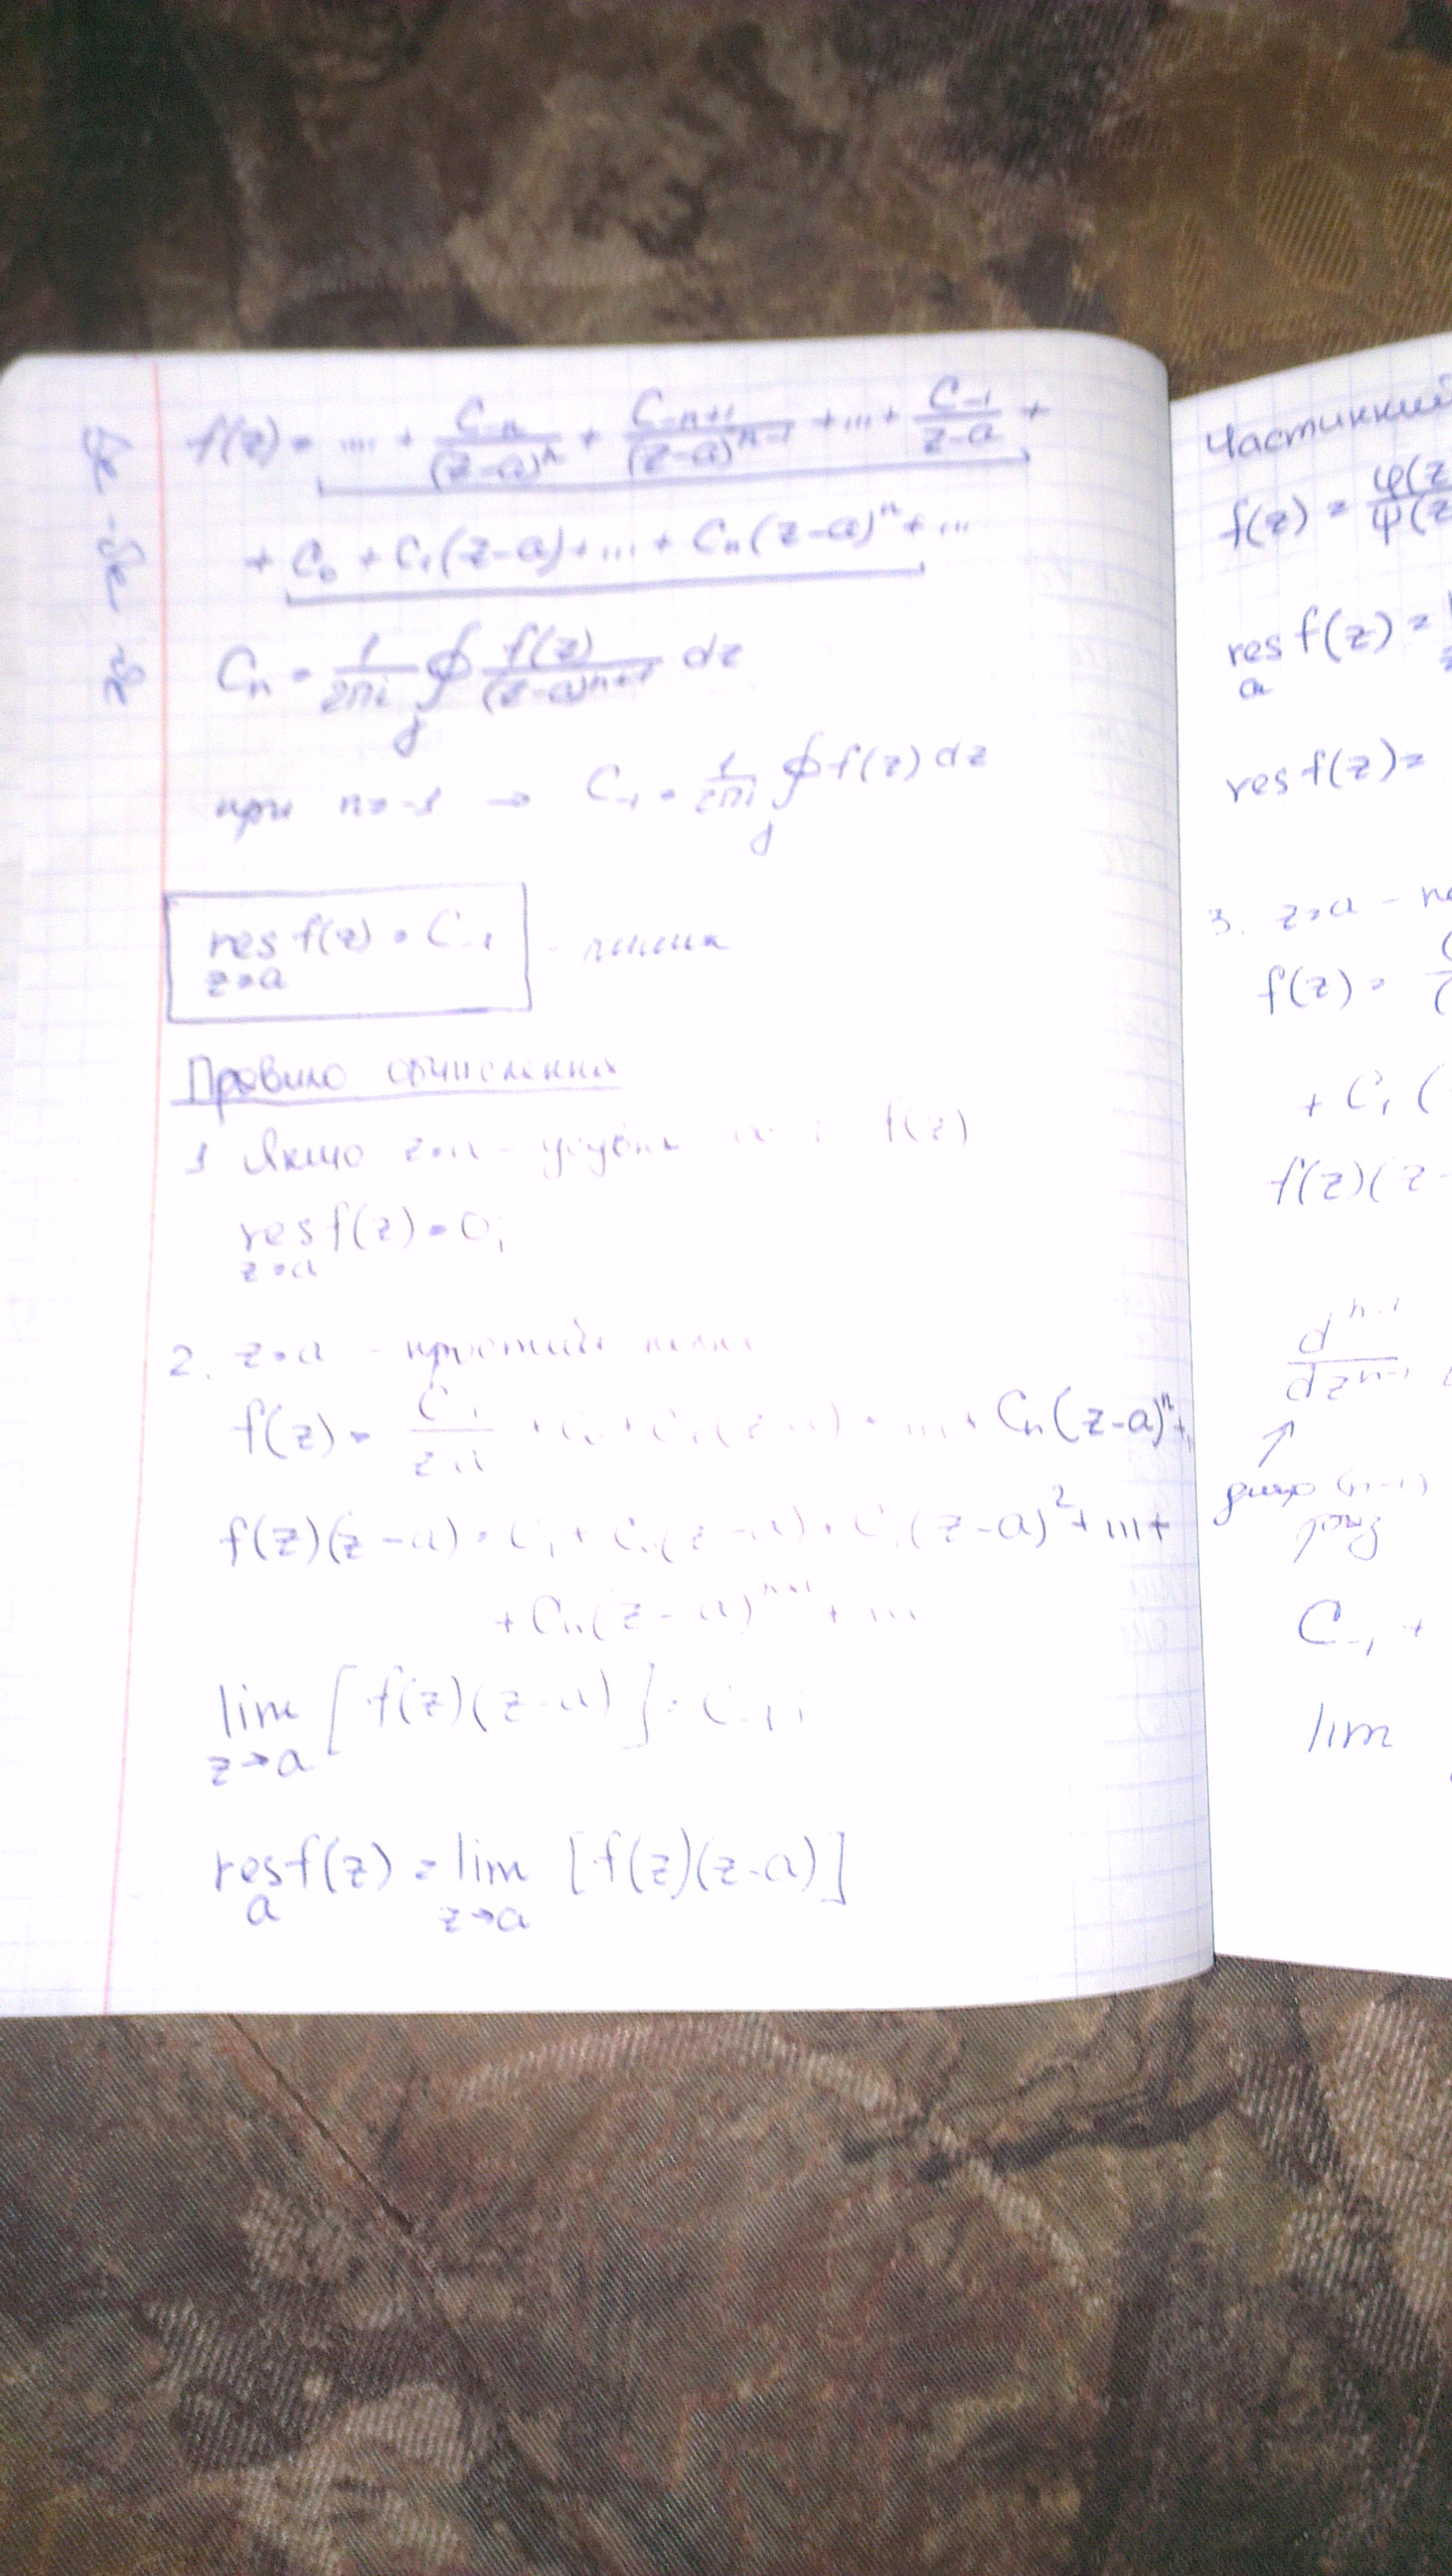 f(z) = .... + C-n/(z-a)^n + C-n+1/(z-a)^n-1 + ... + C-1/z-a +
+ C0 + C1(z-a) + ... + Cn(z-a)^n + ...
Cn = 1/2πi ∮γ f(z)/(z-a)^n+1 dz
при n=-1 → C-1 = 1/2πi ∮γ f(z) dz
res f(z) = C-1 - лишок
z=a
Правило обчислення
1. Якщо z=a - усувна f(z)
res f(z) = 0;
z=a
2. z=a - простий полюс
f(z) = C-1/z-a + C0 + C1(z-a) + ... + Cn(z-a)^n +
f(z)(z-a) = C-1 + C0(z-a) + C1(z-a)^2 + ... +
+ Cn(z-a)^n+1 + ...
lim [f(z)(z-a)] = C-1;
z→a
res f(z) = lim [f(z)(z-a)]
a z→a
f(z) = φ(z
ψ(z
res f(z) =
a
res f(z) =
3. z=a -
f(z) =
+ C1 (
f(z)(z-
d^n-1
dz^n-1
(n-1)
раз
C-1 +
lim